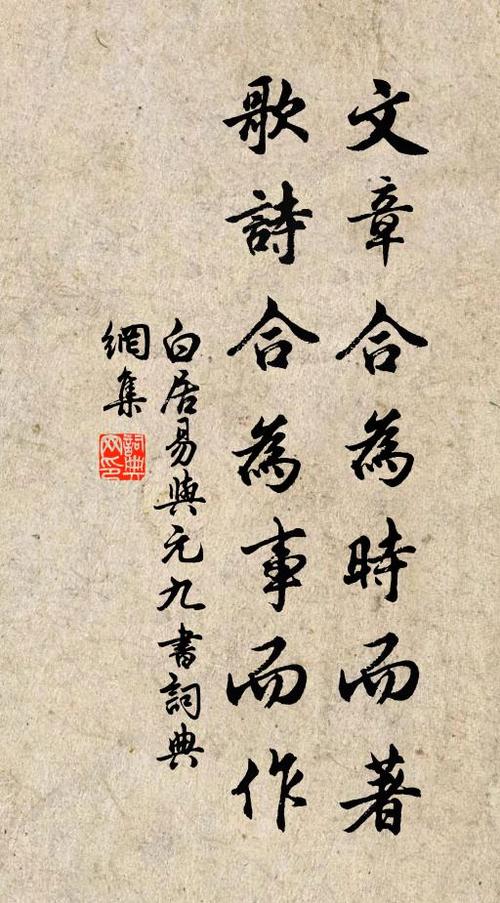 文章合為時而著
歌詩合為事而作
白居易與元九書詞典
網集
詞典
网印